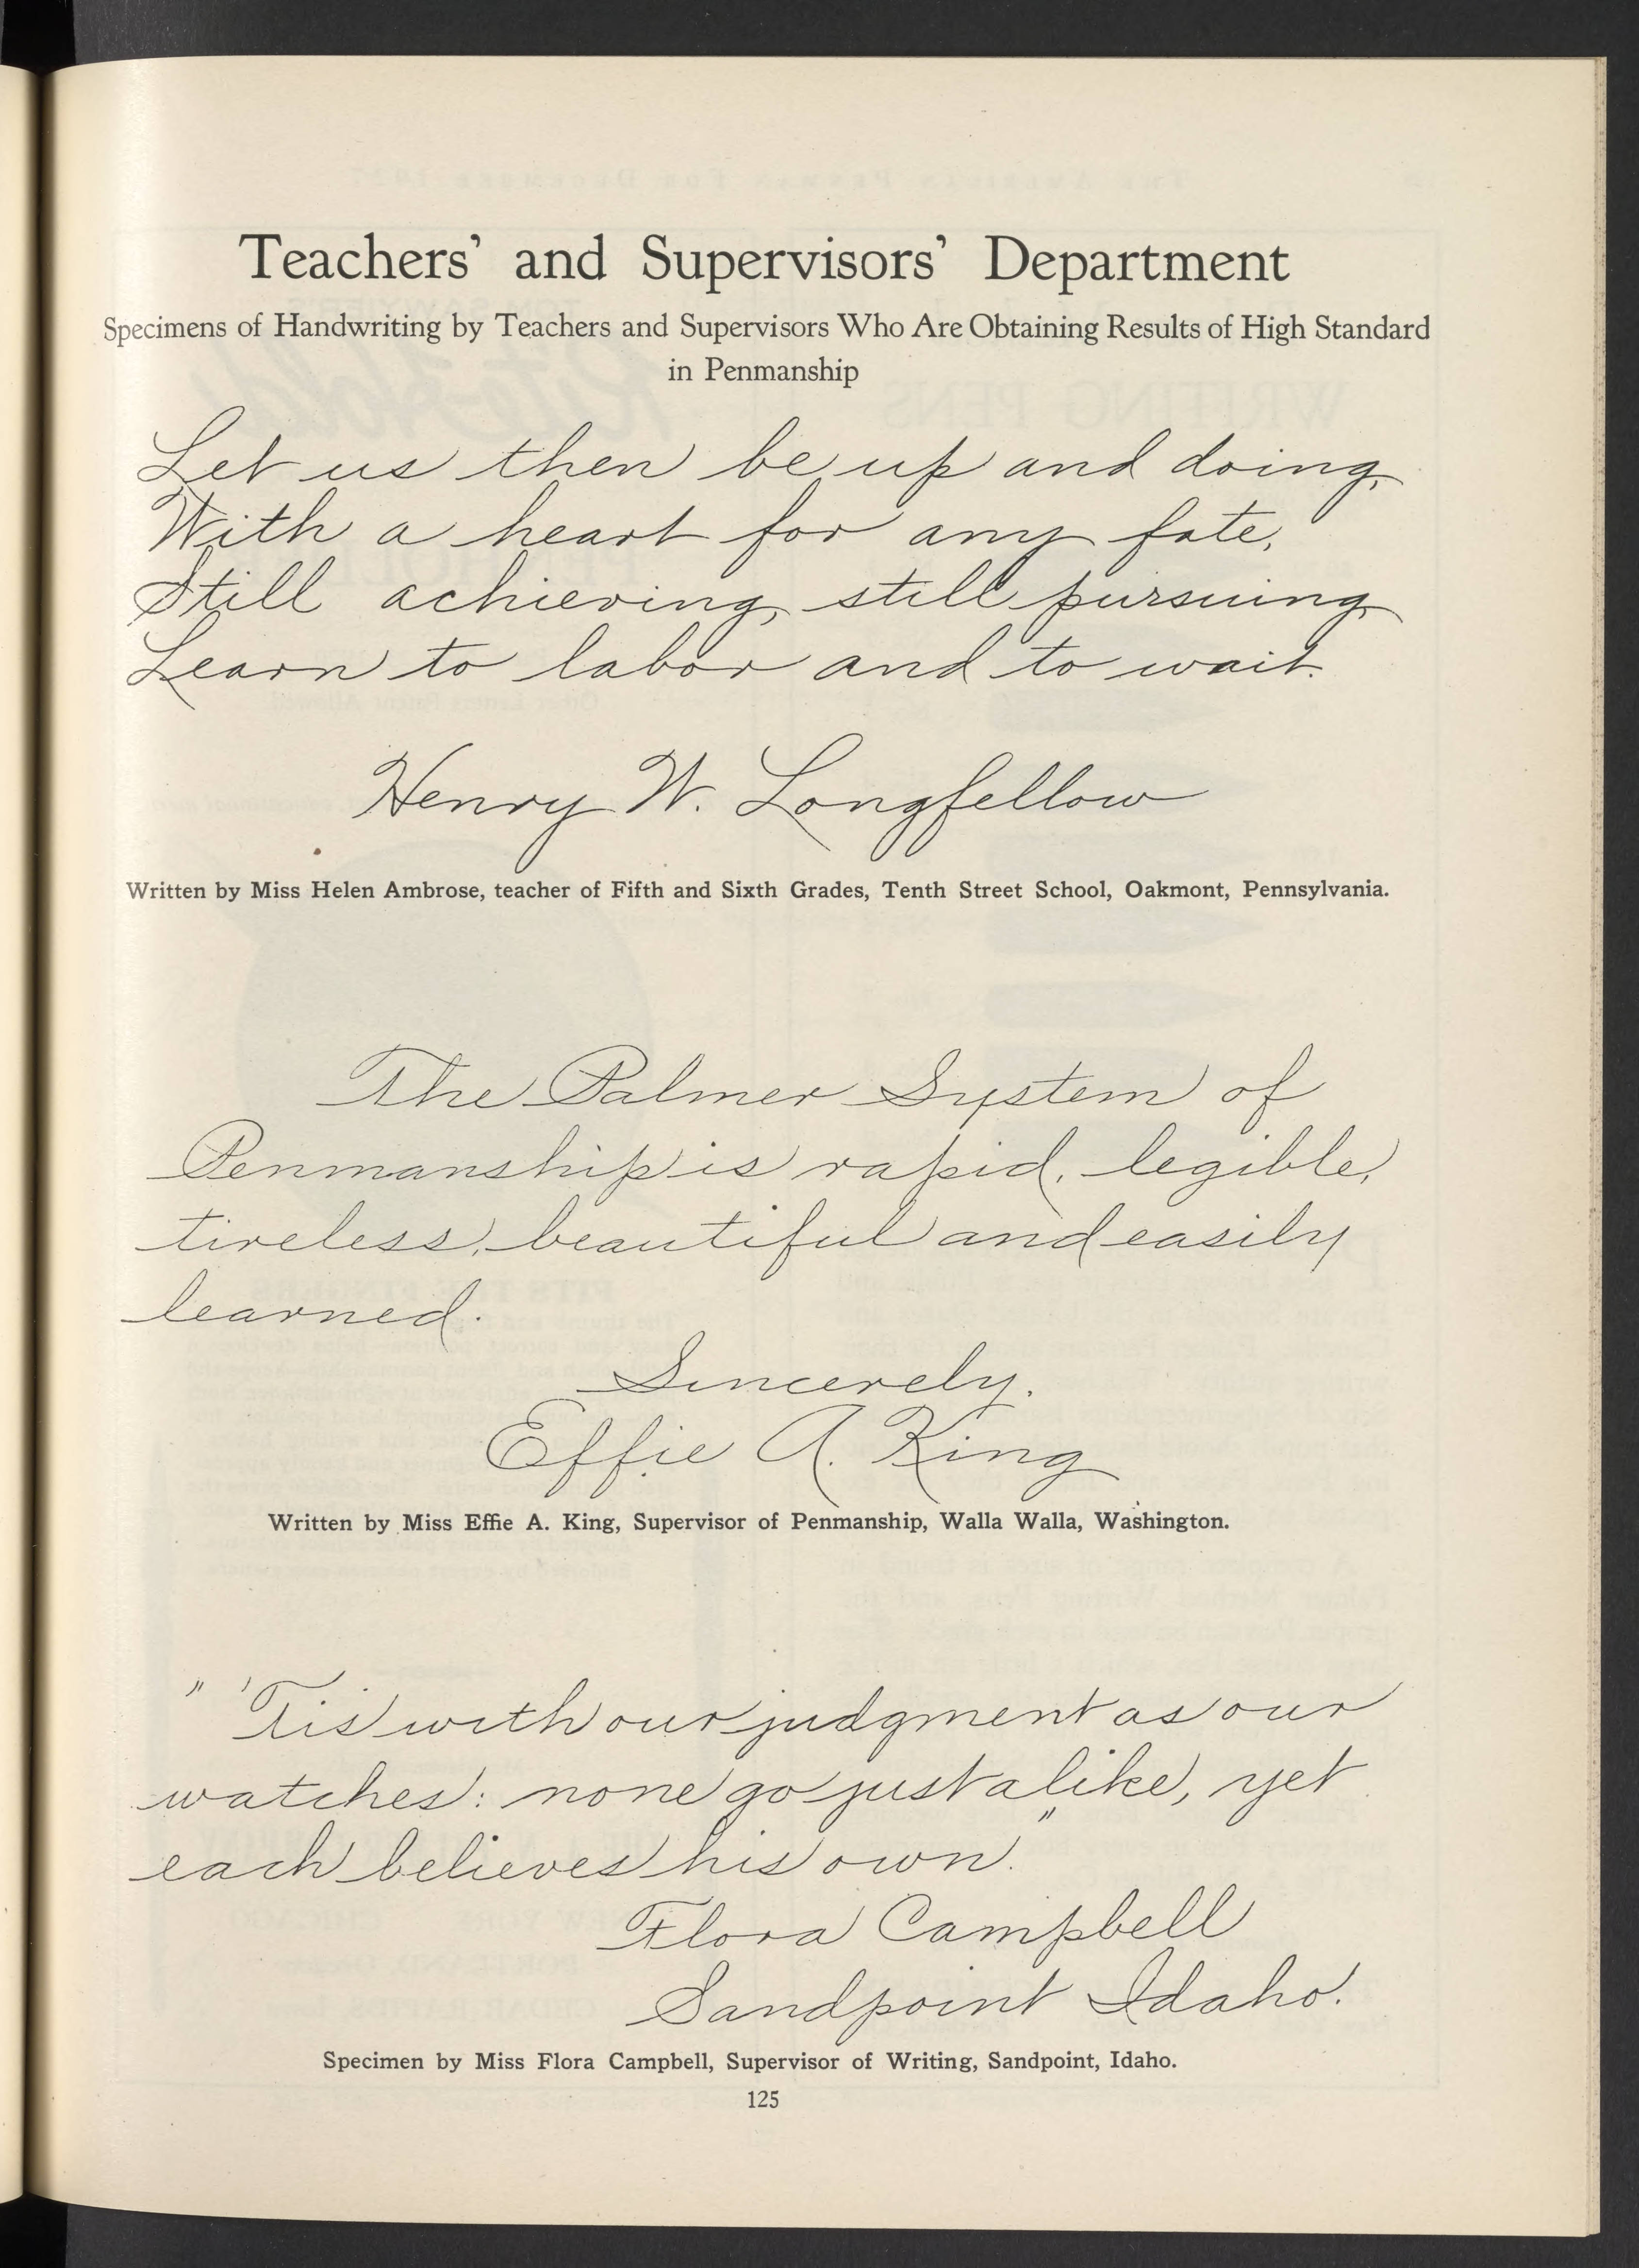 Teachers' and Supervisors' Department
Specimens of Handwriting by Teachers and Supervisors Who Are Obtaining Results of High Standard
in Penmanship
Let us then be up and doing,
With a heart for any fate,
Still achieving, still pursuing,
Learn to labor and to wait.
Henry W. Longfellow
Written by Miss Helen Ambrose, teacher of Fifth and Sixth Grades, Tenth Street School, Oakmont, Pennsylvania.
The Palmer System of
Penmanship is rapid, legible,
tireless, beautiful and easily
learned.
Sincerely,
Effie A. King
Written by Miss Effie A. King, Supervisor of Penmanship, Walla Walla, Washington.
" 'Tis with our judgment as our
watches: none go just alike, yet
each believes his own."
Flora Campbell
Sandpoint Idaho.
Specimen by Miss Flora Campbell, Supervisor of Writing, Sandpoint, Idaho.
125